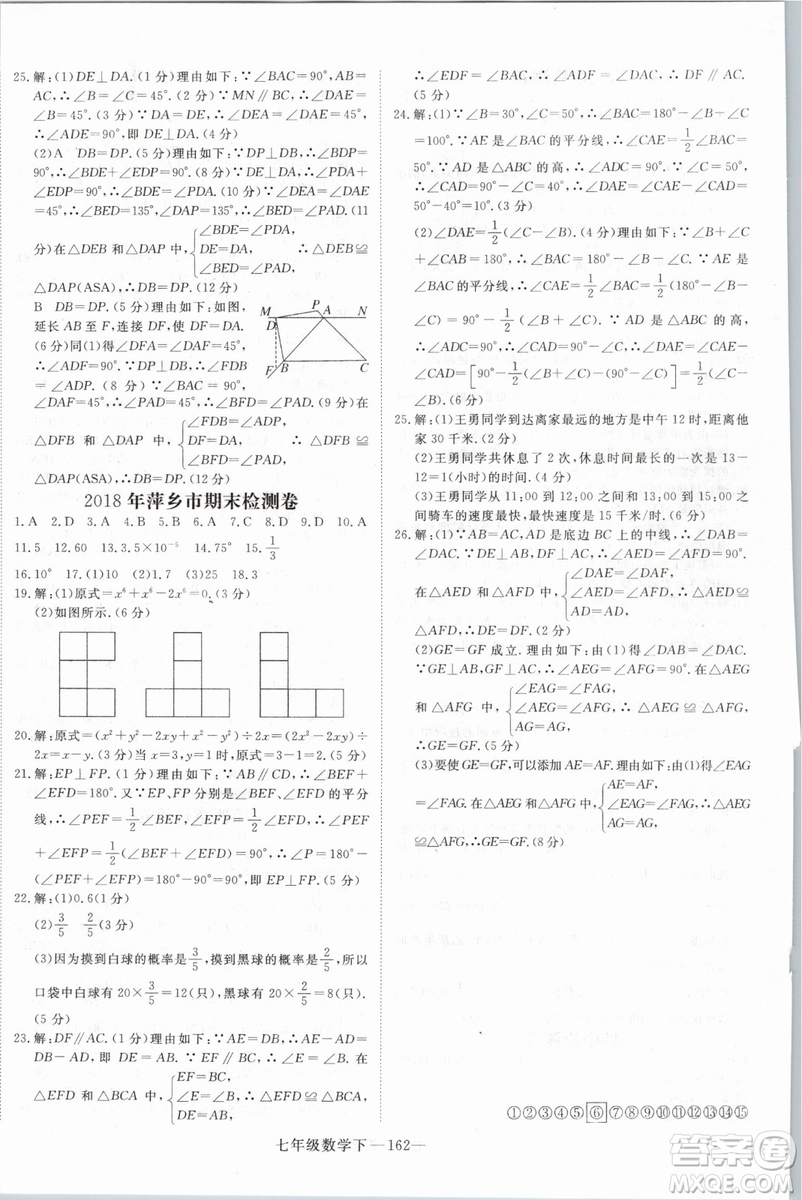 25.解:(1)DE⊥DA.(1分)理由如下:∵∠BAC=90°,AB=
AC,∴∠B=∠C=45°.(2分)∵MN∥BC,∴∠DAE=
∠B=45°.(3分)∵DA=DE,∴∠DEA=∠DAE=45°,
∴∠ADE=90°,即DE⊥DA.(4分)
(2)A DB=DP.(5分)理由如下:∵DP⊥DB,∴∠BDP=
90°,∴∠BDE+∠EDP=90°.(8分)∵DE⊥DA,∴∠ADP+
∠EDP=90°,∴∠BDE=∠PDA.(10分)∵∠DEA=∠DAE=
45°,∴∠BED=135°,∠DAP=135°,∴∠BED=∠PAD.(11
分)在△DEB和△DAP中,{∠BDE=∠PDA, DE=DA, ∠BED=∠PAD, ∴△DEB≌
△DAP(ASA),∴DB=DP.(12分)
B DB=DP.(5分)理由如下:如图,
延长AB至F,连接DF,使DF=DA.
(6分)同(1)得DF=DA,∠DFA=
∠DAF=45°.∴∠ADP=∠FDB
=∠ADP.(8分)∵∠BAC=90°,
∠DAF=45°,∴∠PAD=45°,∴∠BFD=∠PAD.(9分)在
△DFB和△DAP中,{∠FDB=∠ADP, DF=DA, ∠BFD=∠PAD, ∴△DFB≌
△DAP(ASA),∴DB=DP.(12分)
M P A N
D
F B C
2018年萍乡市期末检测卷
1.A 2.D 3.A 4.C 5.B 6.A 7.C 8.D 9.D 10.A
11.5 12.60 13.3.5×10⁻⁵ 14.75° 15.1/3
16.10° 17.(1)10 (2)1.7 (3)25 18.3
19.解:(1)原式=x⁶+x⁶-2x⁶=0.(3分)
(2)如图所示.(6分)
20.解:原式=(x²+y²-2xy+x²-y²)÷2x=(2x²-2xy)÷
2x=x-y.(3分)当x=3,y=1时,原式=3-1=2.(5分)
21.解:EP⊥FP.(1分)理由如下:∵AB∥CD,∴∠BEF+
∠EFD=180°.又EP、FP分别是∠BEF、∠EFD的平分
线,∴∠PEF=1/2∠BEF,∠EFP=1/2∠EFD,∴∠PEF
+∠EFP=1/2(∠BEF+∠EFD)=90°,∴∠P=180°-
(∠PEF+∠EFP)=180°-90°=90°,即EP⊥FP.(5分)
22.解:(1)0.6(1分)
(2)3/5 2/5(2分)
(3)因为摸到白球的概率是3/5,摸到黑球的概率是2/5,所以
口袋中白球有20×3/5=12(只),黑球有20×2/5=8(只).
(5分)
23.解:DF∥AC.(1分)理由如下:∵AE=DB,∴AE-AD=
DB-AD,即DE=AB.∵EF∥BC,∴∠E=∠B.(2分)在
△EFD和△BCA中,{EF=BC, ∠E=∠B, DE=AB, ∴△EFD≌△BCA,
∴∠EDF=∠BAC,∴∠ADF=∠DAC,∴DF∥AC.
(5分)
24.解:(1)∵∠B=30°,∠C=50°,∴∠BAC=180°-∠B-∠C
=100°.∵AE是∠BAC的平分线,∴∠CAE=1/2∠BAC=
50°.∵AD是△ABC的高,∴∠ADC=90°,∴∠CAD=
90°-∠C=90°-50°=40°,∴∠DAE=∠CAE-∠CAD=
50°-40°=10°.(3分)
(2)∠DAE=1/2(∠C-∠B).(4分)理由如下:∵∠B+∠C
+∠CAB=180°,∴∠BAC=180°-∠B-∠C.∵AE是
∠BAC的平分线,∴∠CAE=1/2∠CAB=1/2(180°-∠B-
∠C)=90°-1/2(∠B+∠C).(5分)∵AD是△ABC的高,
∴∠ADC=90°,∴∠CAD=90°-∠C,∴∠DAE=∠CAE-
∠CAD=[90°-1/2(∠B+∠C)]-(90°-∠C)=1/2(∠C
-∠B).(6分)
25.解:(1)王勇同学到达离家最远的地方是中午12时,距离他
家30千米.(2分)
(2)王勇同学共休息了2次,其中最长的一次是休息了13-
12=1(小时)的时间.(4分)
(3)王勇从11:00到12:00和从13:00到15:00这两段时
间骑车的速度最快,最快速度是15千米/时.(6分)
26.解:(1)∵AB=AC,AD是底边BC上的中线,∴∠BAD=
∠CAD.∵DE⊥AB,DF⊥AC,∴∠AED=∠AFD=90°.
在△AED和△AFD中,{∠DAE=∠DAF, ∠AED=∠AFD, AD=AD, ∴△AED≌
△AFD,∴DE=DF.(2分)
(2)GE=GF成立.理由如下:由(1)得∠DAB=∠DAC.
∵GE⊥AB,GF⊥AC,∴∠AEG=∠AFG=90°.在△AEG
和△AFG中,{∠EAG=∠FAG, ∠AEG=∠AFG, AG=AG, ∴△AEG≌△AFG,
∴GE=GF.(5分)
(3)要使GE=GF,可以添加AE=AF.理由如下:∵∠EAG
=∠FAG.在△AEG和△AFG中,{AE=AF, ∠EAG=∠FAG, AG=AG, ∴△AEG
≌△AFG,∴GE=GF.(8分)
①②③④⑤⑥⑦⑧⑨⑩⑪⑫⑬⑭⑮
七年级数学下 —162—